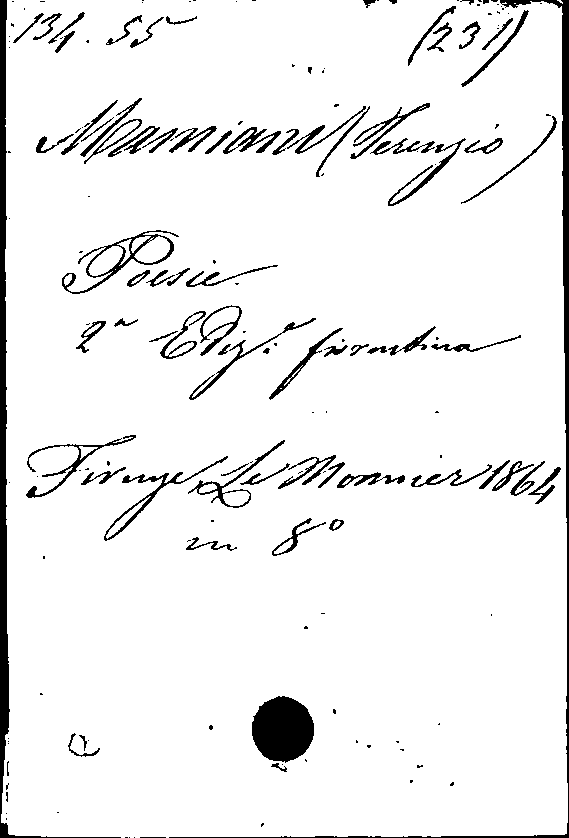 134. 55 (231)
Mamiani (Terenzio)
Poesie.
2ª Ediz.e fiorentina
Firenze, Le Monnier 1864
in 8º